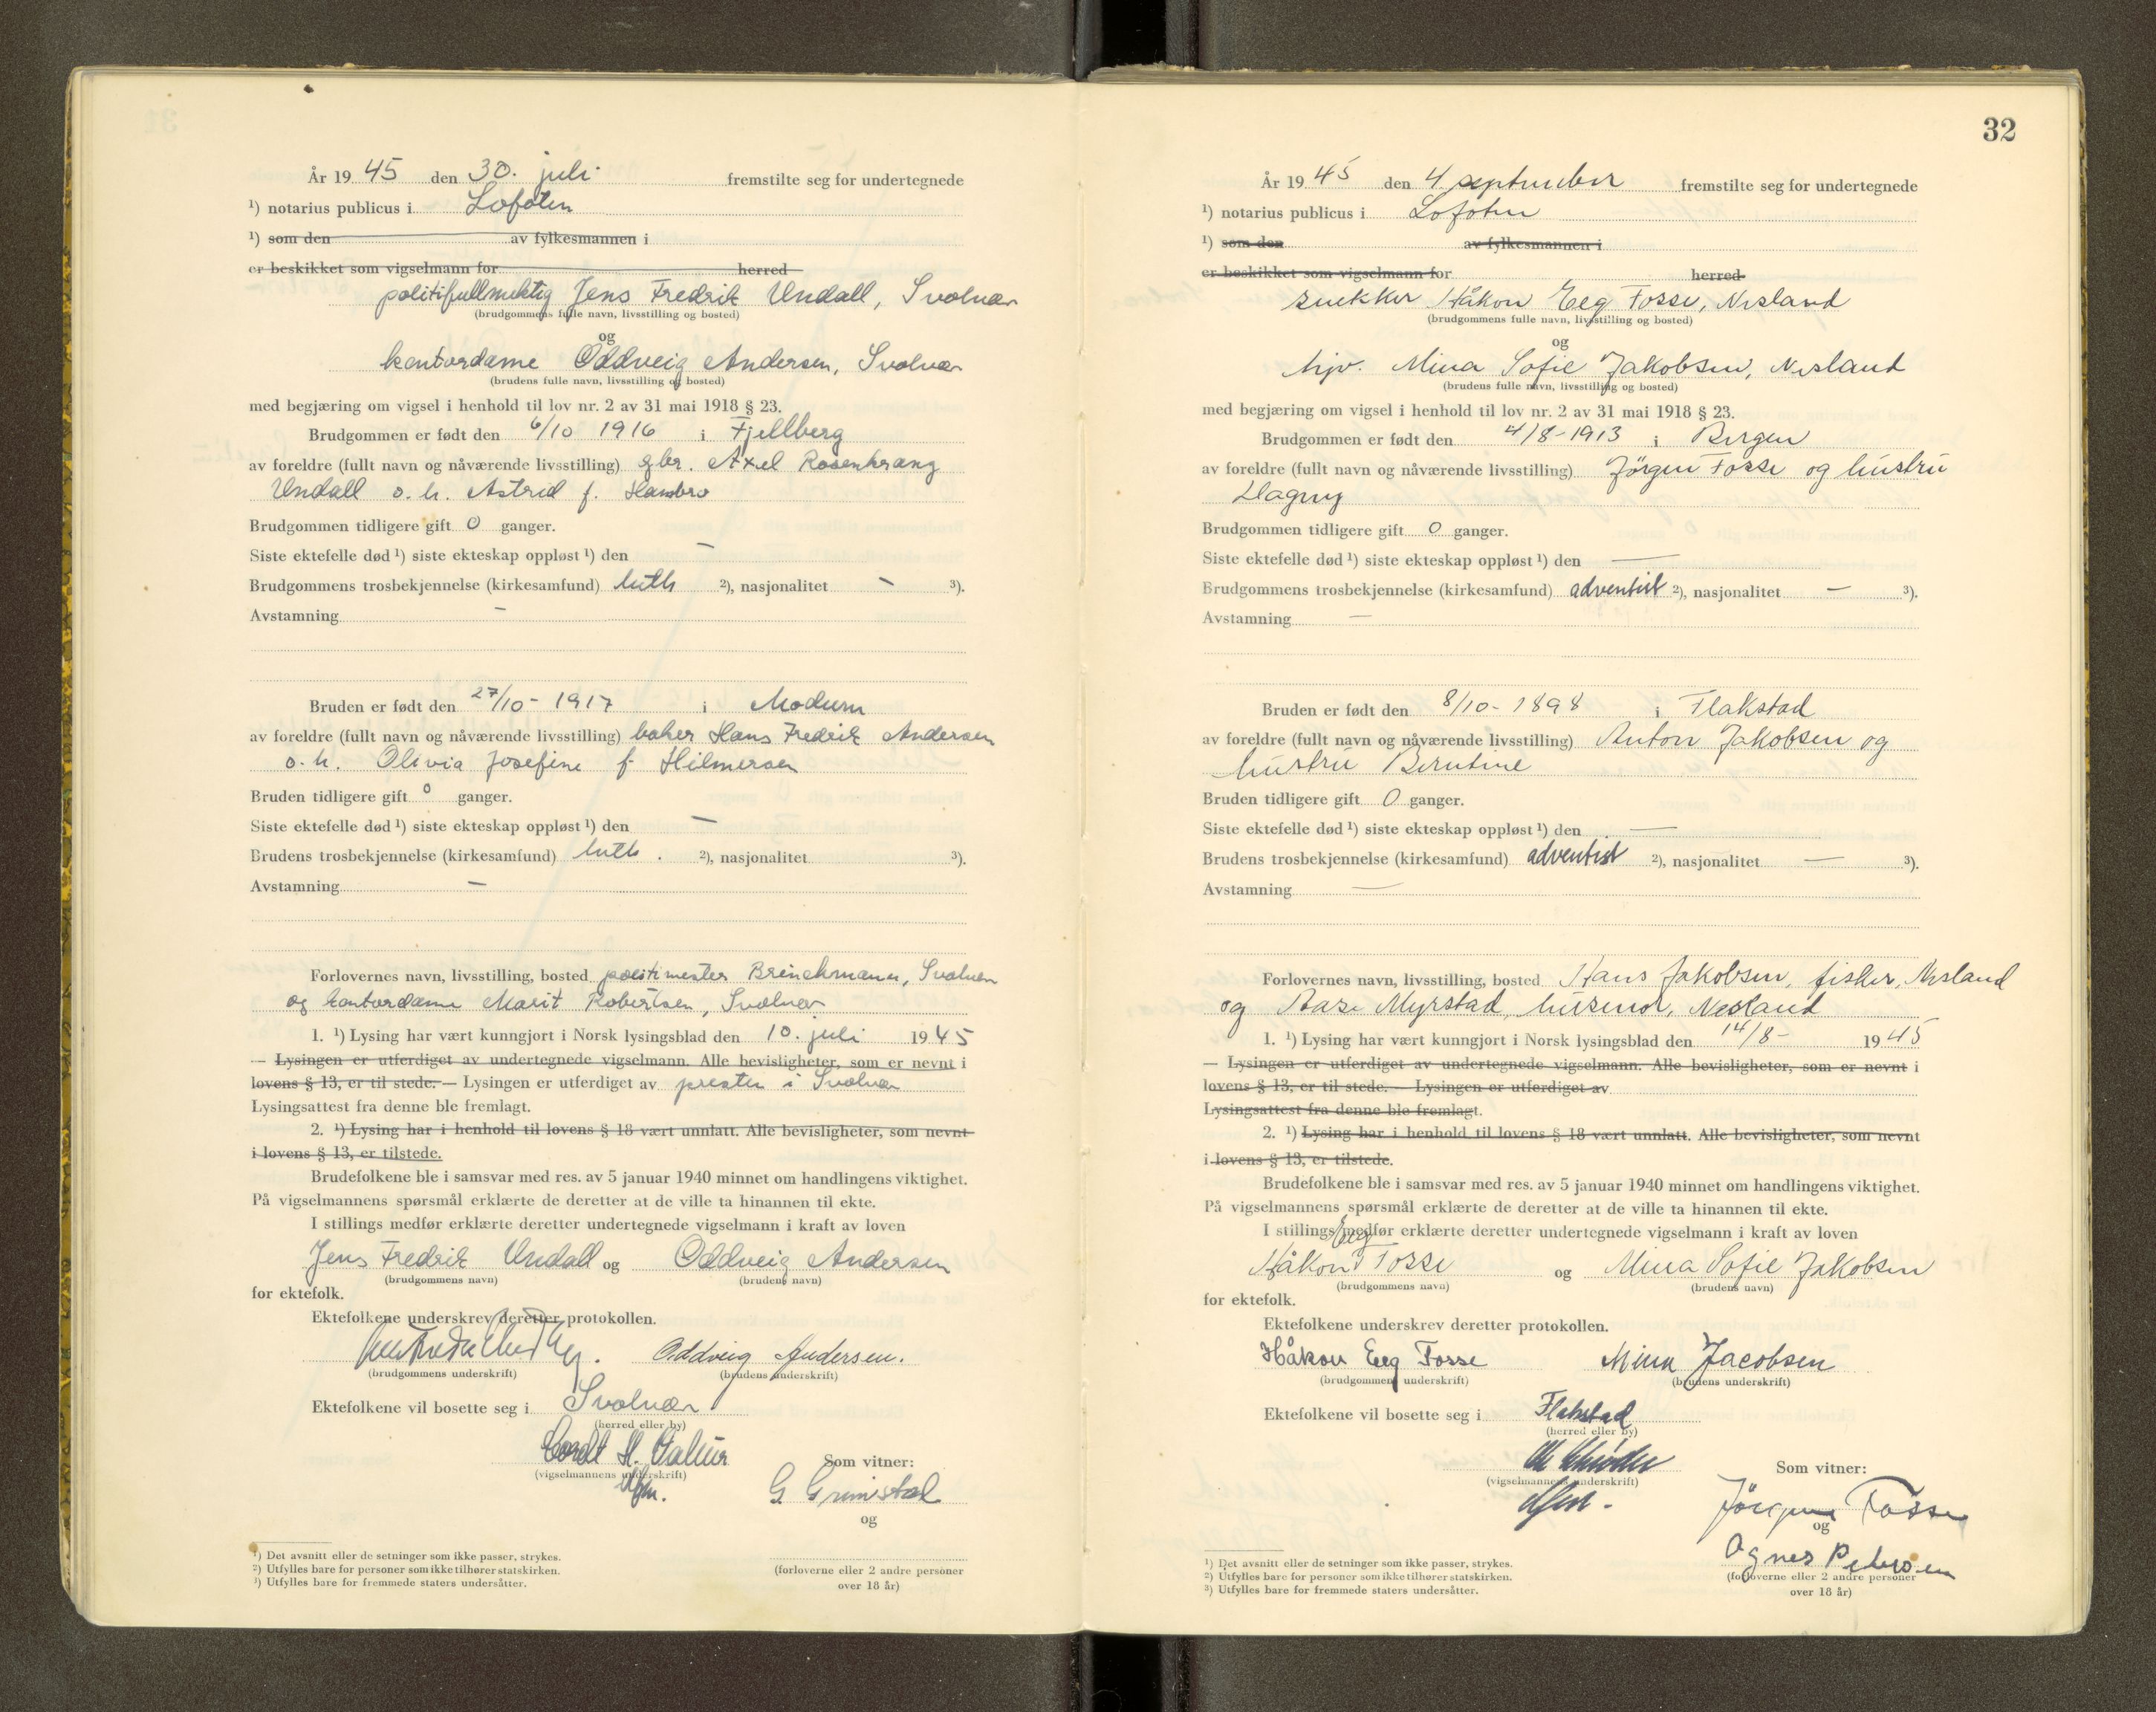 År 19 45 den 30. juli fremstilte seg for undertegnede
¹) notarius publicus i Lofoten
¹) som den av fylkesmannen i
er beskikket som vigselmann for herred
politifullmektig Jens Fredrik Undall, Svolvær
(brudgommens fulle navn, livsstilling og bosted)
og
kontordame Oddveig Andersen, Svolvær
(brudens fulle navn, livsstilling og bosted)
med begjæring om vigsel i henhold til lov nr. 2 av 31 mai 1918 § 23.
Brudgommen er født den 6/10 1916 i Fjellberg
av foreldre (fullt navn og nåværende livsstilling) gbr. Axel Rosenkrang
Undall o. h. Astrid f. Hambro
Brudgommen tidligere gift 0 ganger.
Siste ektefelle død ¹) siste ekteskap oppløst ¹) den —
Brudgommens trosbekjennelse (kirkesamfund) luth ²), nasjonalitet — ³).
Avstamning —
Bruden er født den 27/10 - 1917 i Modum
av foreldre (fullt navn og nåværende livsstilling) baker Hans Fredrik Andersen
o. h. Olivia Josefine f. Hilmersen
Bruden tidligere gift 0 ganger.
Siste ektefelle død ¹) siste ekteskap oppløst ¹) den —
Brudens trosbekjennelse (kirkesamfund) luth . ²), nasjonalitet ³).
Avstamning —
Forlovernes navn, livsstilling, bosted politimester Brinchmann, Svolvær
og kontordame Marit Robertsen, Svolvær
1. ¹) Lysing har vært kunngjort i Norsk lysingsblad den 10. juli 19 45
— Lysingen er utferdiget av undertegnede vigselmann. Alle bevisligheter, som er nevnt i
lovens § 13, er til stede. — Lysingen er utferdiget av presten i Svolvær
Lysingsattest fra denne ble fremlagt.
2. ¹) Lysing har i henhold til lovens § 18 vært unnlatt. Alle bevisligheter, som nevnt
i lovens § 13, er tilstede.
Brudefolkene ble i samsvar med res. av 5 januar 1940 minnet om handlingens viktighet.
På vigselmannens spørsmål erklærte de deretter at de ville ta hinannen til ekte.
I stillings medfør erklærte deretter undertegnede vigselmann i kraft av loven
Jens Fredrik Undall og Oddveig Andersen
(brudgommens navn) (brudens navn)
for ektefolk.
Ektefolkene underskrev deretter protokollen.
Oddveig Andersen.
(brudgommens underskrift) (brudens underskrift)
Ektefolkene vil bosette seg i Svolvær
(herred eller by)
(vigselmannens underskrift)
Som vitner:
G Grimstad
og
(forloverne eller 2 andre personer
over 18 år)
¹) Det avsnitt eller de setninger som ikke passer, strykes.
²) Utfylles bare for personer som ikke tilhører statskirken.
³) Utfylles bare for fremmede staters undersåtter.
32
År 19 45 den 4 september fremstilte seg for undertegnede
¹) notarius publicus i Lofoten
¹) som den av fylkesmannen i
er beskikket som vigselmann for herred
snekker Håkon Eeg Fosse, Nesland
(brudgommens fulle navn, livsstilling og bosted)
og
hjv. Mina Sofie Jakobsen, Nesland
(brudens fulle navn, livsstilling og bosted)
med begjæring om vigsel i henhold til lov nr. 2 av 31 mai 1918 § 23.
Brudgommen er født den 4/8-1913 i Bergen
av foreldre (fullt navn og nåværende livsstilling) Jörgen Fosse og hustru
Dagny
Brudgommen tidligere gift 0 ganger.
Siste ektefelle død ¹) siste ekteskap oppløst ¹) den —
Brudgommens trosbekjennelse (kirkesamfund) adventist ²), nasjonalitet — ³).
Avstamning —
Bruden er født den 8/10-1898 i Flakstad
av foreldre (fullt navn og nåværende livsstilling) Anton Jakobsen og
hustru Berntine
Bruden tidligere gift 0 ganger.
Siste ektefelle død ¹) siste ekteskap oppløst ¹) den —
Brudens trosbekjennelse (kirkesamfund) adventist ²), nasjonalitet — ³).
Avstamning —
Forlovernes navn, livsstilling, bosted Hans Jakobsen, fisker, Nesland
og Aase Myrstad, husmor, Nesland
1. ¹) Lysing har vært kunngjort i Norsk lysingsblad den 14/8- 19 45
— Lysingen er utferdiget av undertegnede vigselmann. Alle bevisligheter, som er nevnt i
lovens § 13, er til stede. — Lysingen er utferdiget av
Lysingsattest fra denne ble fremlagt.
2. ¹) Lysing har i henhold til lovens § 18 vært unnlatt. Alle bevisligheter, som nevnt
i lovens § 13, er tilstede.
Brudefolkene ble i samsvar med res. av 5 januar 1940 minnet om handlingens viktighet.
På vigselmannens spørsmål erklærte de deretter at de ville ta hinannen til ekte.
I stillings medfør erklærte deretter undertegnede vigselmann i kraft av loven
Håkon Eeg Fosse og Mina Sofie Jakobsen
(brudgommens navn) (brudens navn)
for ektefolk.
Ektefolkene underskrev deretter protokollen.
Håkon Eeg Fosse Mina Jacobsen
(brudgommens underskrift) (brudens underskrift)
Ektefolkene vil bosette seg i Flakstad
(herred eller by)
(vigselmannens underskrift)
Som vitner:
Jörgen Fosse
og
Agnes Petersen
(forloverne eller 2 andre personer
over 18 år)
¹) Det avsnitt eller de setninger som ikke passer, strykes.
²) Utfylles bare for personer som ikke tilhører statskirken.
³) Utfylles bare for fremmede staters undersåtter.